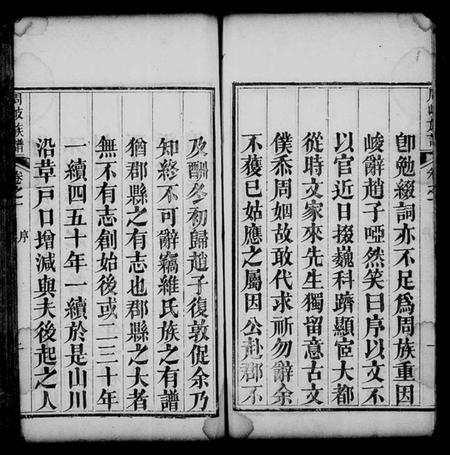 卽勉綴詞亦不足爲周族重因
峻辭趙子啞然笑曰序以文不
以官近日掇巍科躋顯宦大都
從時文家來先生獨留意古文
僕忝周姻故敢代求祈勿辭余
不獲已姑應之屬因公赴郡不
及酬冬初歸趙子復敦促余乃
知終不可辭竊維氏族之有譜
猶郡縣之有志也郡縣之大者
無不有志創始後或二三十年
一續四五十年一續於是山川
沿革戸口增減與夫後起之人
族譜
卷之一
序